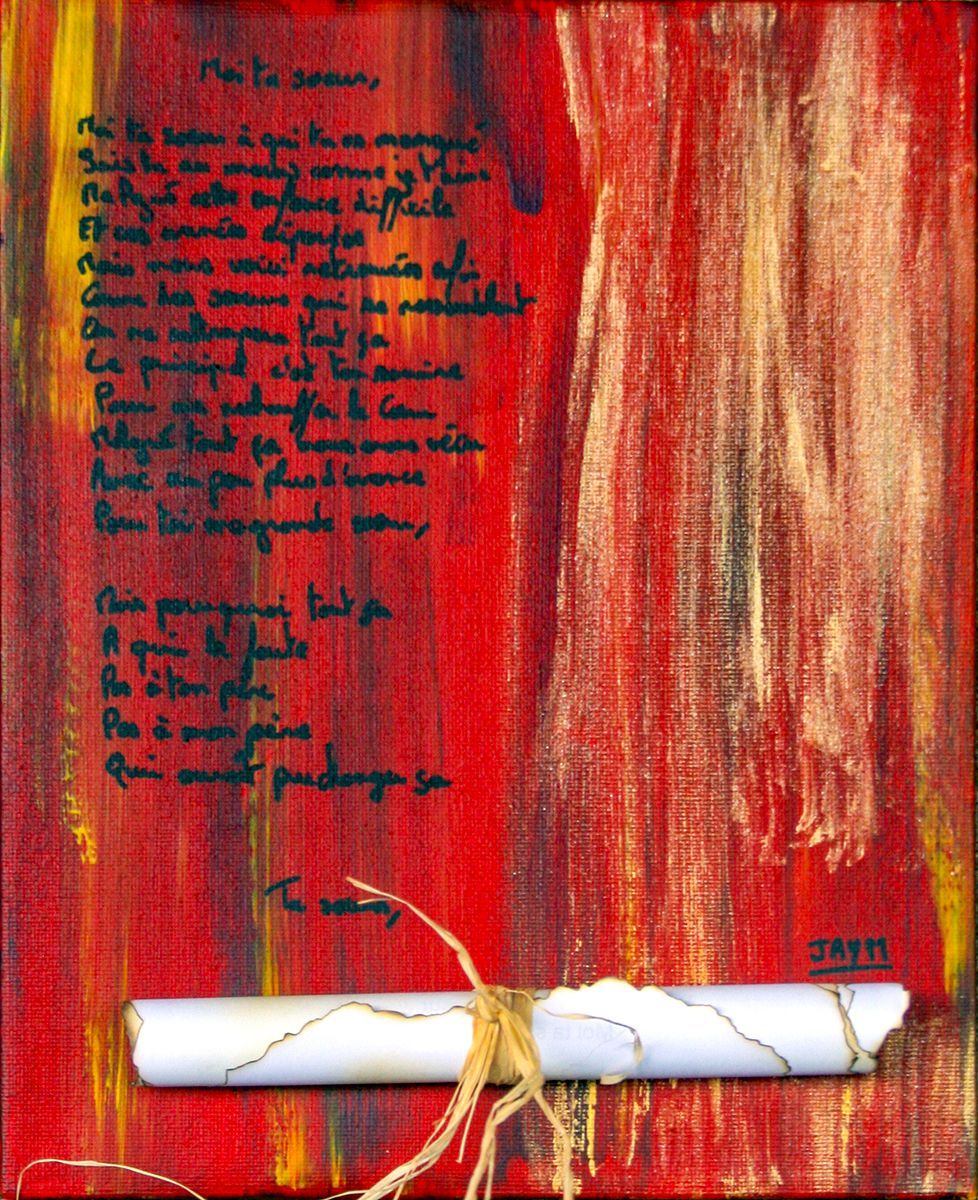 Moi ta soeur,
Moi ta soeur à qui tu as manqué
Sais tu au moins comme je t'aime
Malgré cette enfance difficile
Et ces années
Mais nous voici retrouvées
Comme les soeurs qui se ressemblent
On ne tout ça
Le principal c'est ton sourire
Pour me le Coeur
Malgré tout ça nous avons vécu
Avec un peu plus d'avance
Pour toi ma grande soeur,
Mais pourquoi tout ça
A qui la faute
Pas à ton père
Pas à mon père
Qui aurait pu changer ça
Ta soeur,
JAYM
Moi ta s